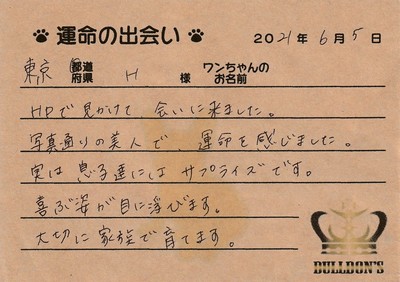 運命の出会い 2021年6月5日
東京 都道府県 H 様 ワンちゃんのお名前
HPで見かけて、会いに来ました。
写真通りの美人で、運命を感じました。
実は息子達にはサプライズです。
喜ぶ姿が目に浮びます。
大切に家族で育てます。
BULLDON'S